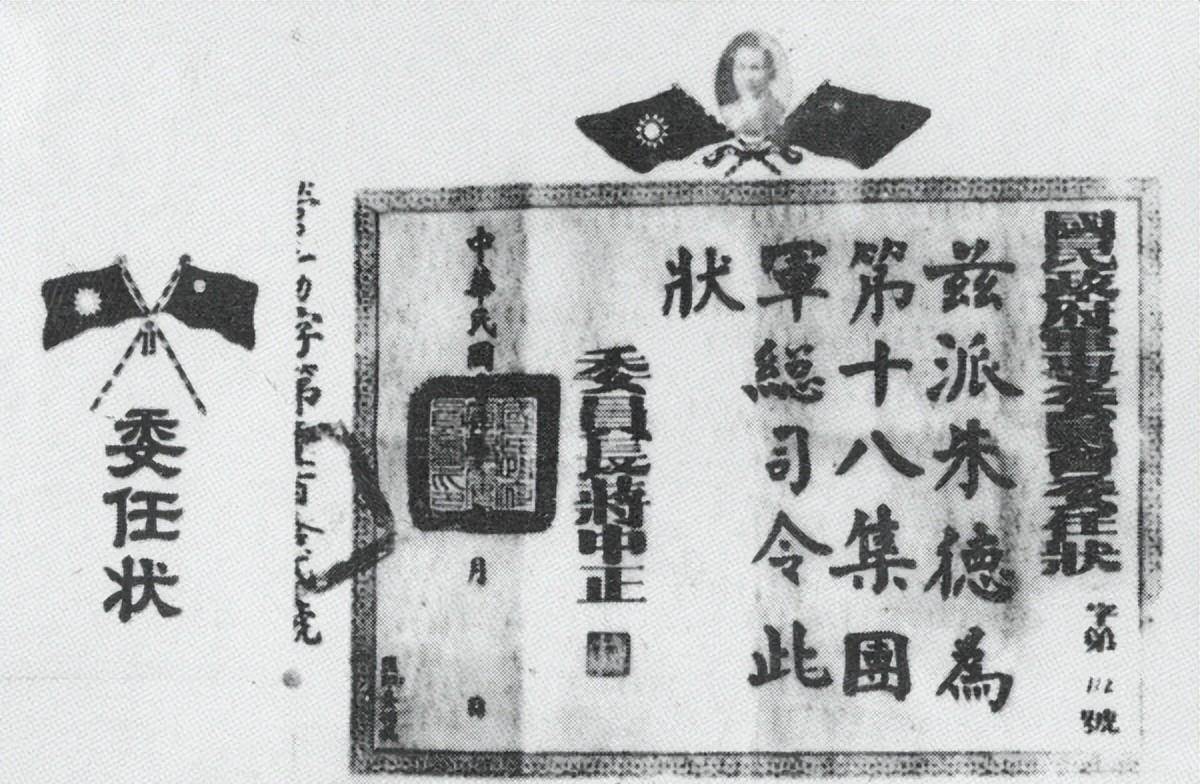 國民政府軍事委員會委任狀
字第 號
茲派朱德為
第十八集團
軍總司令此
狀
委員長蔣中正
中華民國 月 日
字第 百 號
委任状